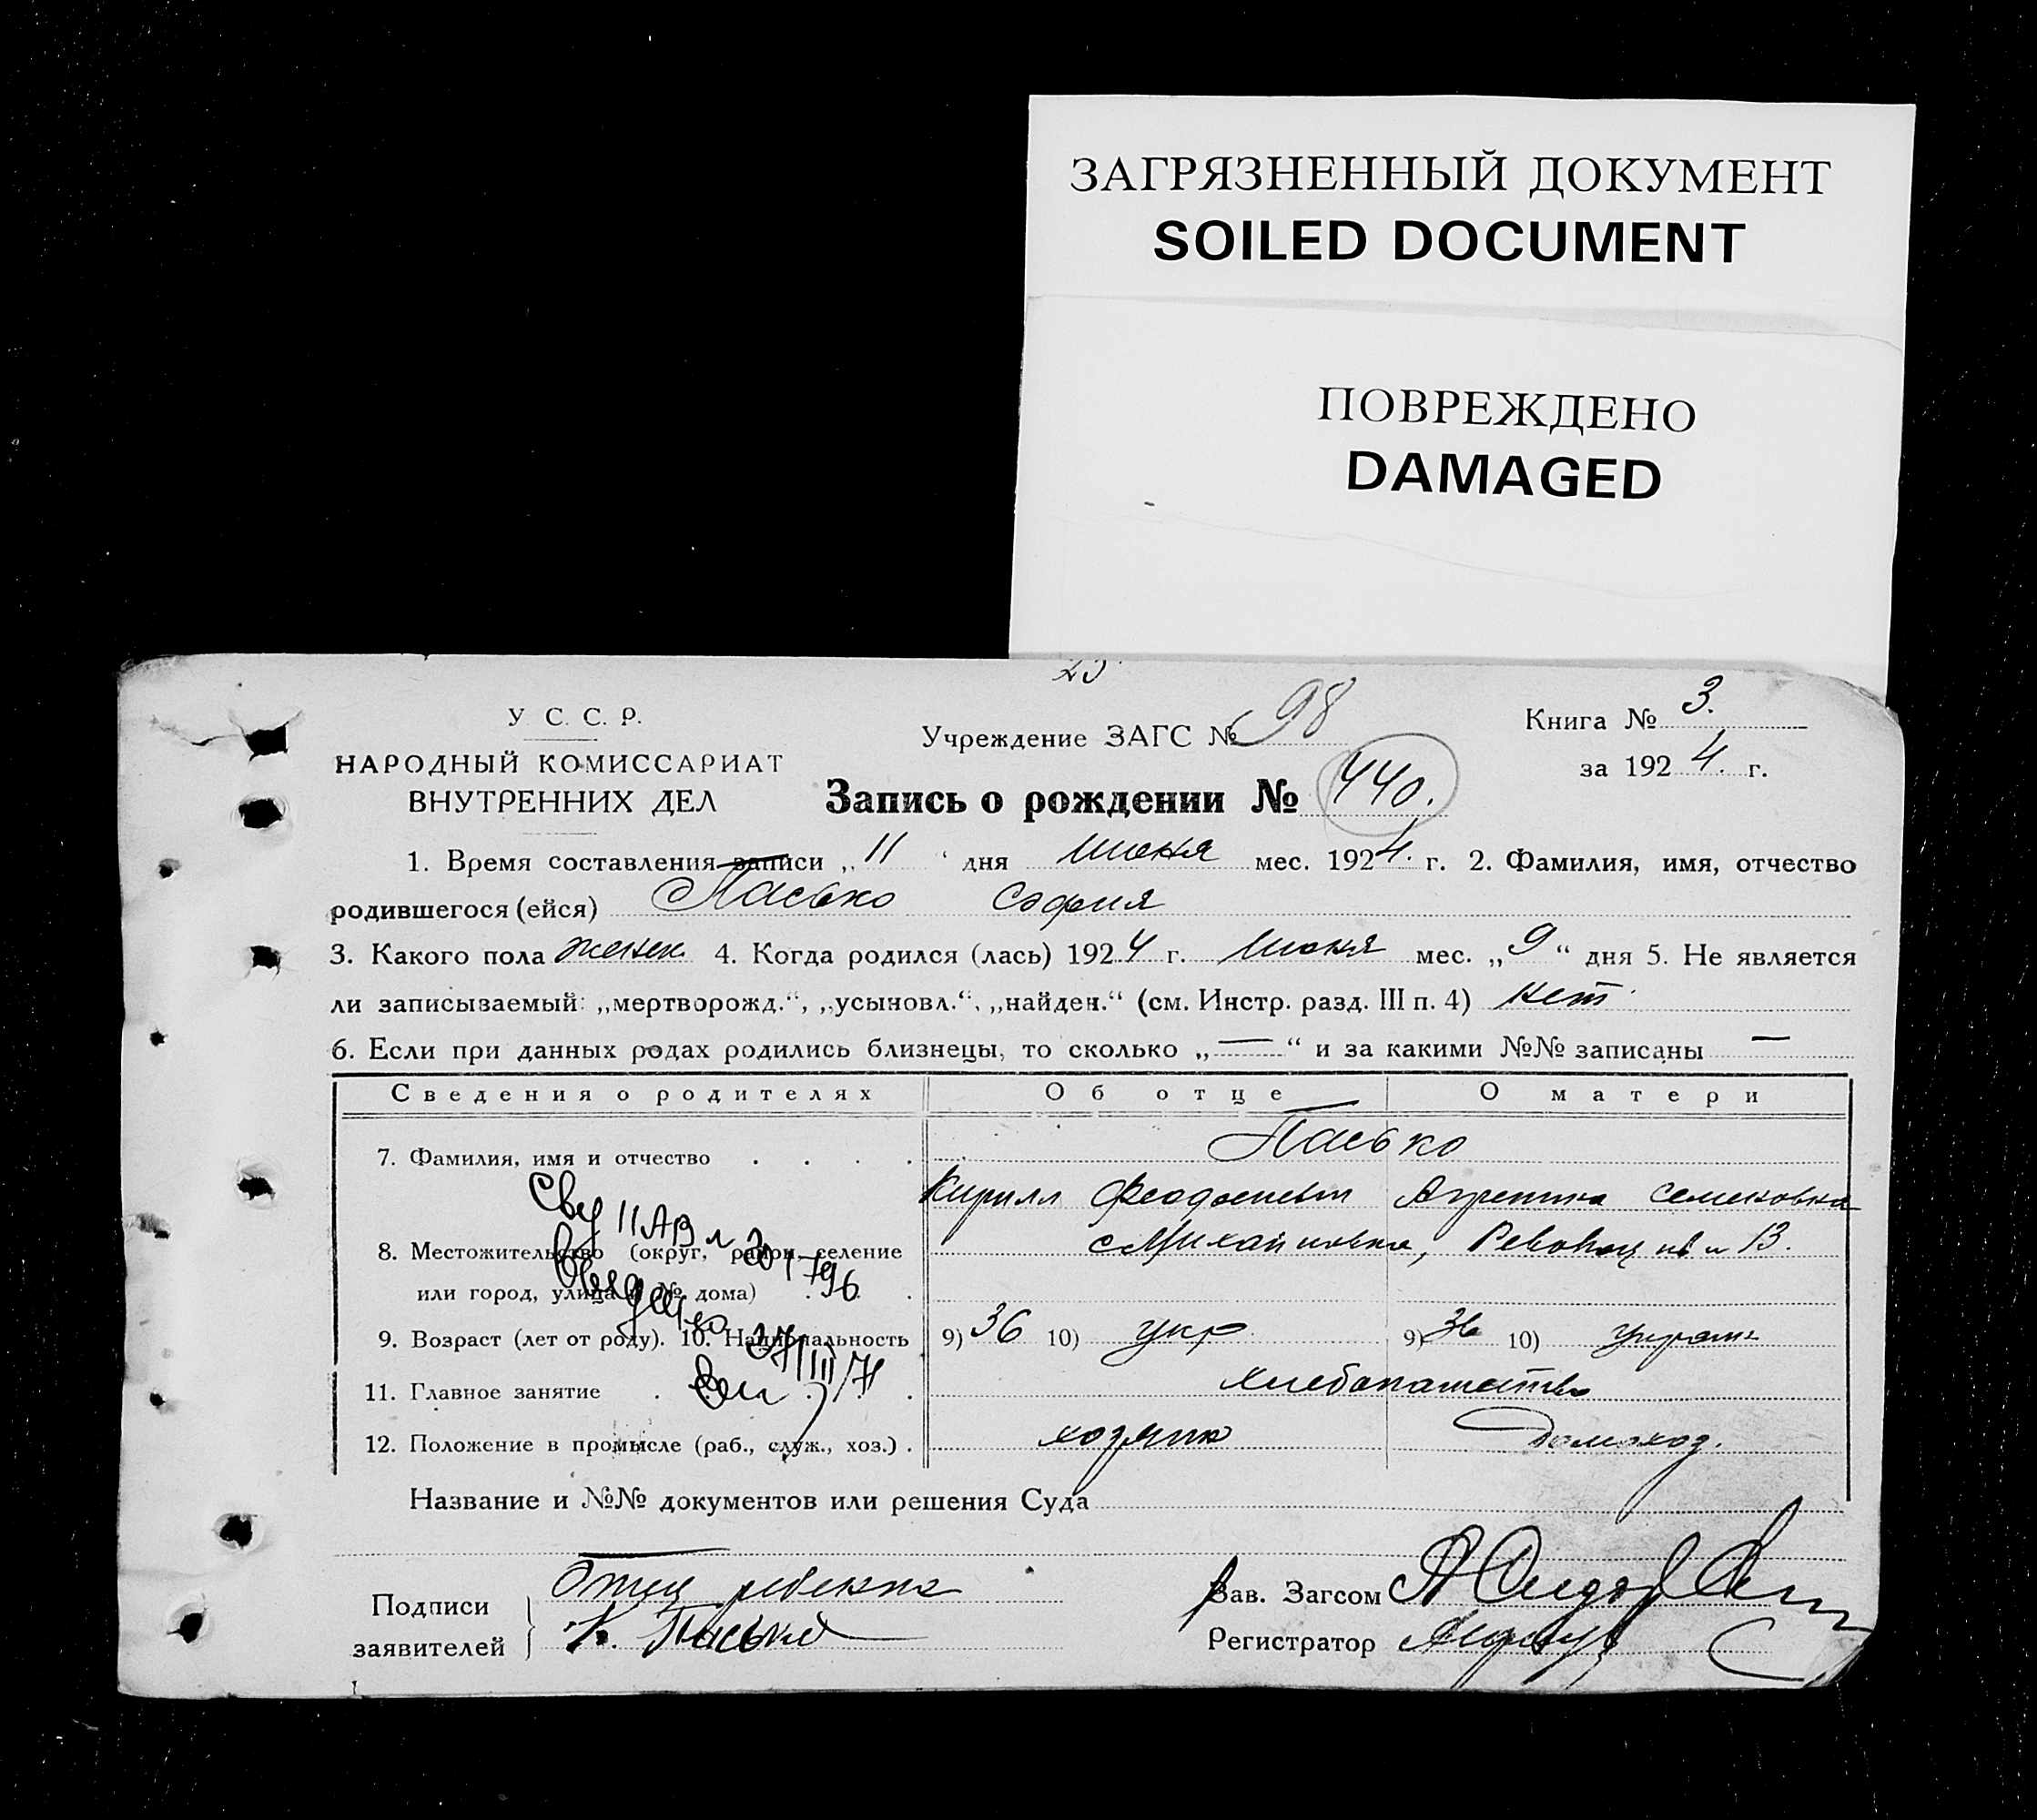 ЗАГРЯЗНЕННЫЙ ДОКУМЕНТ
SOILED DOCUMENT
ПОВРЕЖДЕНО
DAMAGED
У. С. С. Р.
НАРОДНЫЙ КОМИССАРИАТ
ВНУТРЕННИХ ДЕЛ
Учреждение ЗАГС № 98
Книга № 3.
за 1924. г.
Запись о рождении № 440.
1. Время составления записи „11“ дня июня мес. 1924. г. 2. Фамилия, имя, отчество
родившегося (ейся) Пасько София
3. Какого пола женск. 4. Когда родился (лась) 1924 г. июня мес. „9“ дня 5. Не является
ли записываемый: „мертворожд.“, „усыновл.“, „найден.“ (см. Инстр. разд. III п. 4) нет.
6. Если при данных родах родились близнецы, то сколько „—“ и за какими №№ записаны —
Сведения о родителях Об отце О матери
7. Фамилия, имя и отчество . . . . Пасько
Кирилл Феодосиевич Агрепина Семеновна
8. Местожительство (округ, район, селение с Михайловка,
или город, улица и № дома) . . .
9. Возраст (лет от роду). 10. Национальность 9) 36 10) укр. 9) 36 10)
11. Главное занятие . . . хлебопашество
12. Положение в промысле (раб., служ., хоз.) . хозяин домохоз.
Название и №№ документов или решения Суда
Подписи
заявителей
Отец ребенка
К. Пасько
Зав. Загсом
Регистратор